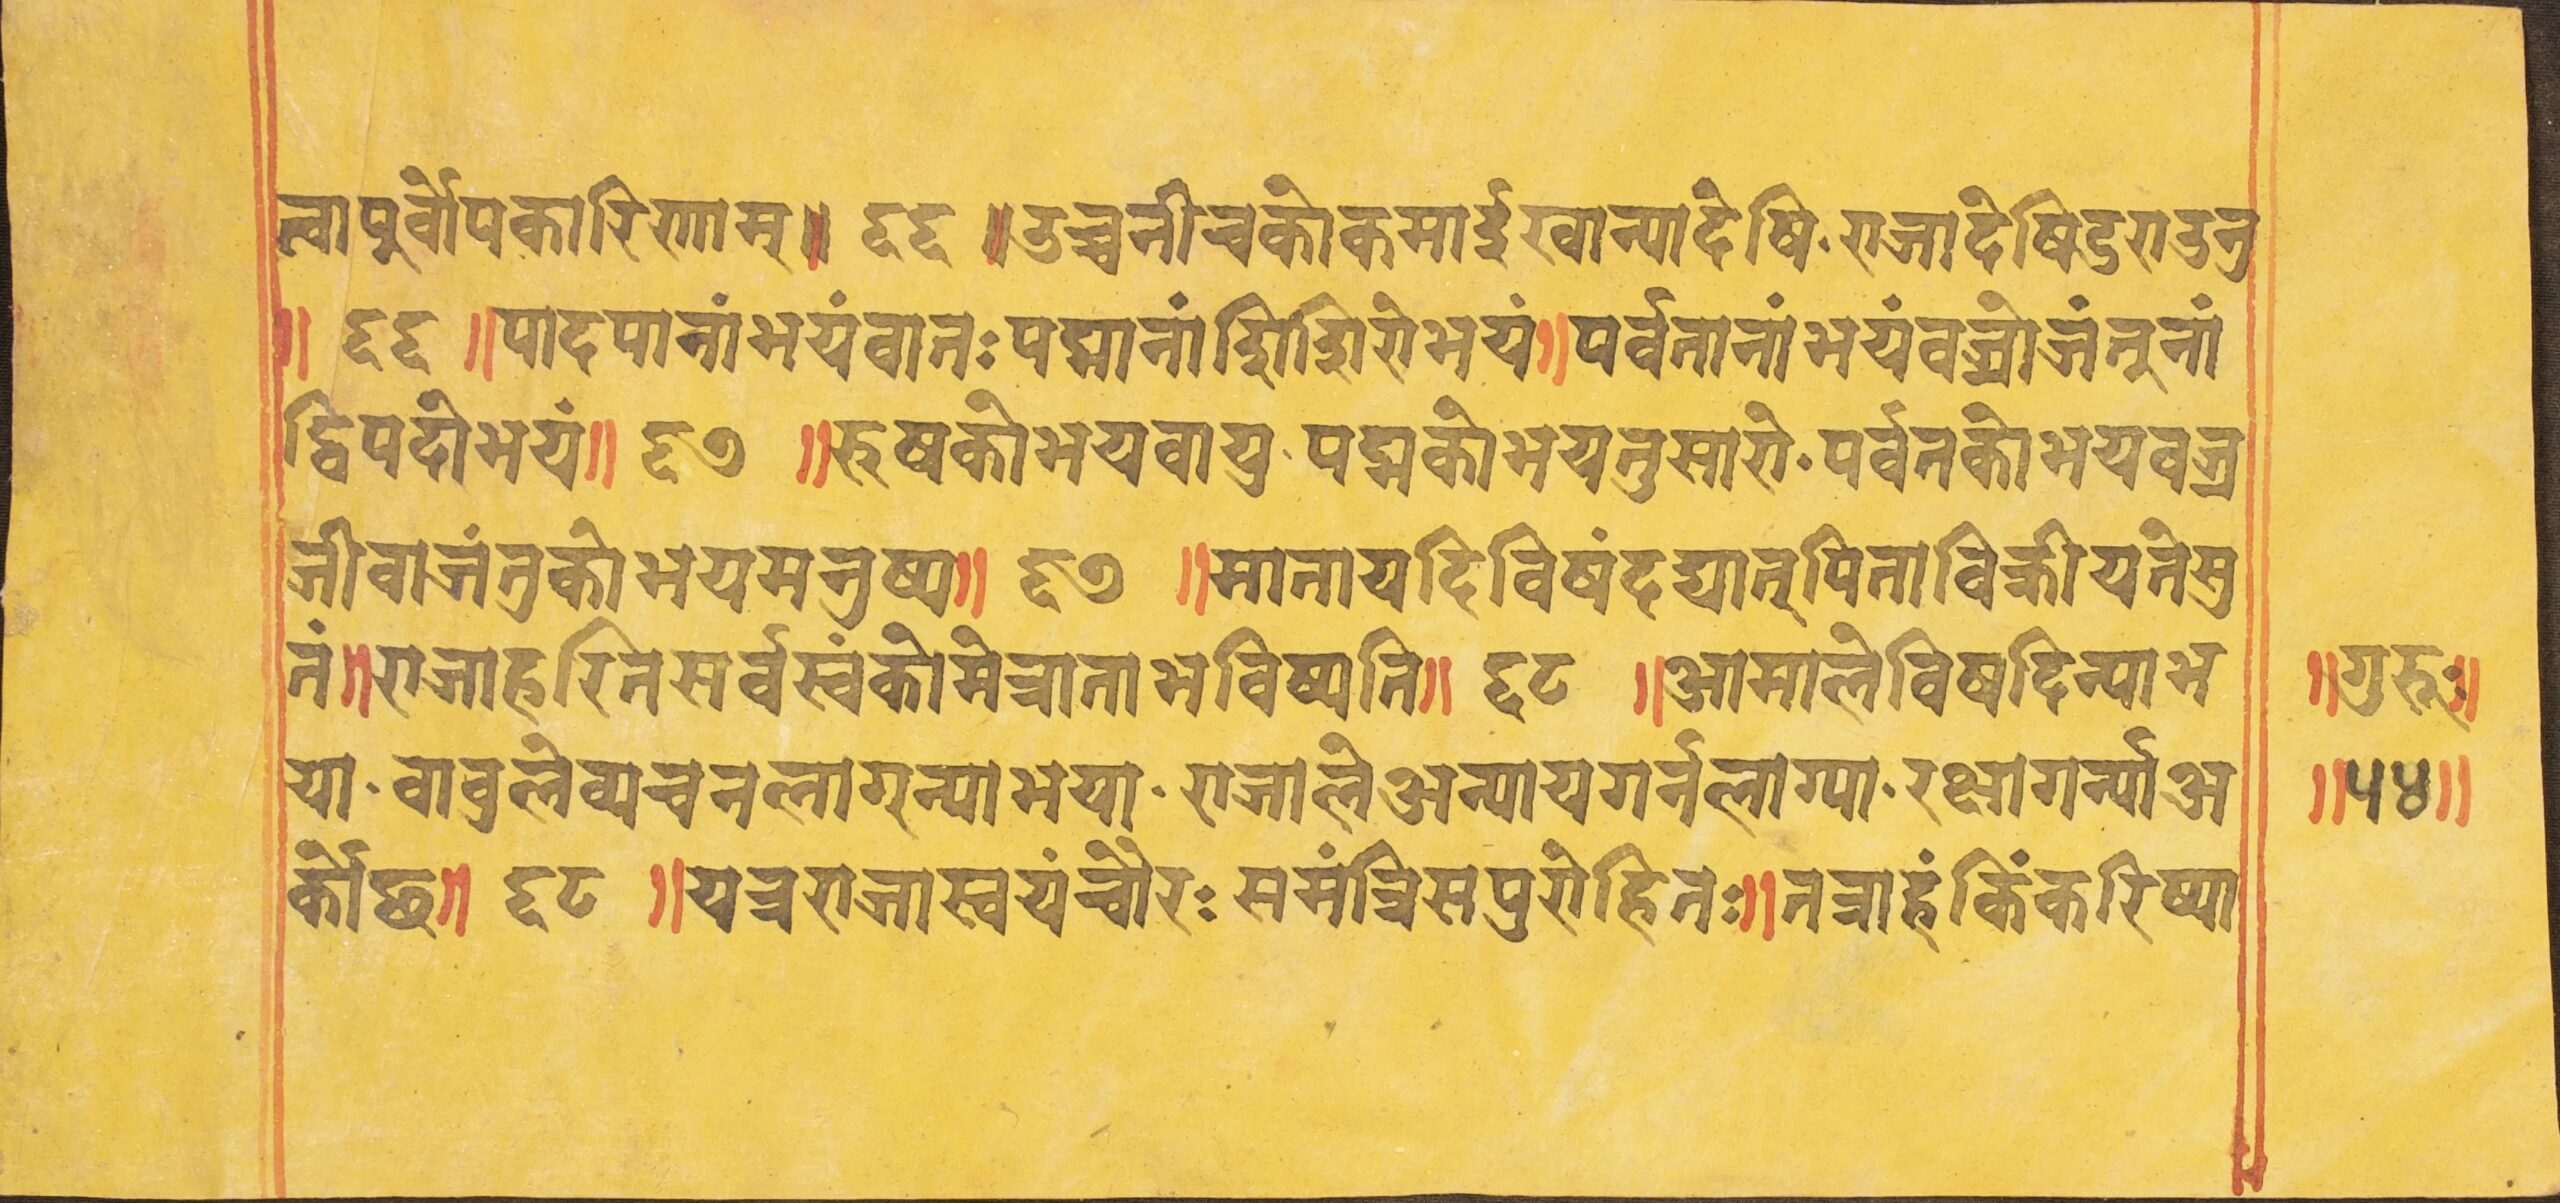 त्वापुर्वोपकारिणाम्॥ ६६ ॥उच्चनीचकोकमार्दुरवान्यादेषि·राजादेषिदुराउनु
॥ ६६ ॥पादपानांभयंवातःपद्मानांशिशिरोभयं॥पर्वतानांभयंवज्रोजंतूनां
द्विपदोभयं॥ ६७ ॥रुषकोभयवायु·पद्मकोभयतुसारो·पर्वतकोभयवज्र
जीवाजंतुकोभयमनुष्य॥ ६७ ॥मातायदिविषंदद्यात्पिताविक्रीयतेसु
तं॥राजाहरतिसर्वस्वंकोमेत्राताभविष्यति॥ ६८ ॥आमालेविषदिन्याभ
या·वावुलेव्यचनलाग्न्याभया·राजालेअन्यायगर्नलाग्या·रक्षागर्न्याअ
र्कोछ॥ ६८ ॥यत्रराजास्वयंचौरः समंत्रिसपुरोहितः॥तत्राहंकिंकरिष्या
॥गुरुः॥
॥५४॥